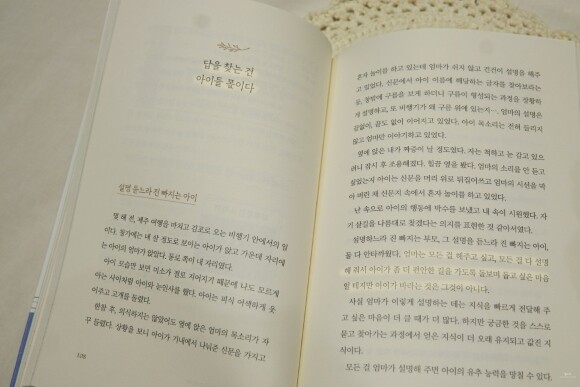 답을 찾는 건
아이들 몫이다
설명 듣느라 진 빠지는 아이
몇 해 전, 제주 여행을 마치고 김포로 오는 비행기 안에서의 일
이다. 창가에는 내 삼 정도로 보이는 아이가 앉고 가운데 자리에
는 아이의 엄마가 앉았다. 통로 쪽이 내 자리였다.
아이 모습만 보면 미소가 절로 지어지기 때문에 나도 모르게
아는 사이처럼 아이와 눈인사를 했다. 아이는 피식 어색하게 웃
어주고 고개를 돌렸다.
한참 후, 의식하지는 않았어도 옆에 앉은 엄마의 목소리가 자
꾸 들렸다. 상황을 보니 아이가 기내에서 나눠준 신문을 가지고
108
혼자 놀이를 하고 있는데 엄마가 쉬지 않고 건건이 설명을 해주
고 있었다. 신문에서 아이 이름에 해당하는 글자를 찾아보라는
둥, 창밖에 구름을 보게 하더니 구름이 형성되는 과정을 장황하
게 설명하고, 또 비행기가 왜 구름 위에 있는지…. 엄마의 설명은
끝없이, 끝도 없이 이어지고 있었다. 아이 목소리는 전혀 들리지
않고 엄마만 이야기하고 있었다.
옆에 앉은 내가 짜증이 날 정도였다. 자는 척하고 눈 감고 있으
려니 잠시 후 조용해졌다. 힐끔 옆을 봤다. 엄마의 소리를 안 듣고
싶었는지 아이는 신문을 머리 위로 뒤집어쓰고 엄마의 시선을 막
아 버린 채 신문지 속에서 혼자 놀이를 하고 있었다.
난 속으로 아이의 행동에 박수를 보냈고 내 속이 시원했다. 자
기 살길을 나름대로 찾겠다는 의지를 표현한 것 같아서였다.
설명하느라 진 빠지는 부모, 그 설명을 듣느라 진 빠지는 아이,
둘 다 안타까웠다. 엄마는 모든 걸 해주고 싶고, 모든 걸 다 설명
해 줘서 아이가 좀 더 편안한 길을 가도록 돌보며 돕고 싶은 마음
일 테지만 아이가 바라는 것은 그것이 아니다.
사실 엄마가 이렇게 설명하는 데는 지식을 빠르게 전달해 주
고 싶은 마음이 더 클 때가 더 많다. 하지만 궁금한 것을 스스로
묻고 찾아가는 과정에서 얻은 지식이 더 오래 유지되고 값진 지
식이다.
모든 걸 엄마가 설명해 주면 아이의 유추 능력을 망칠 수 있다.